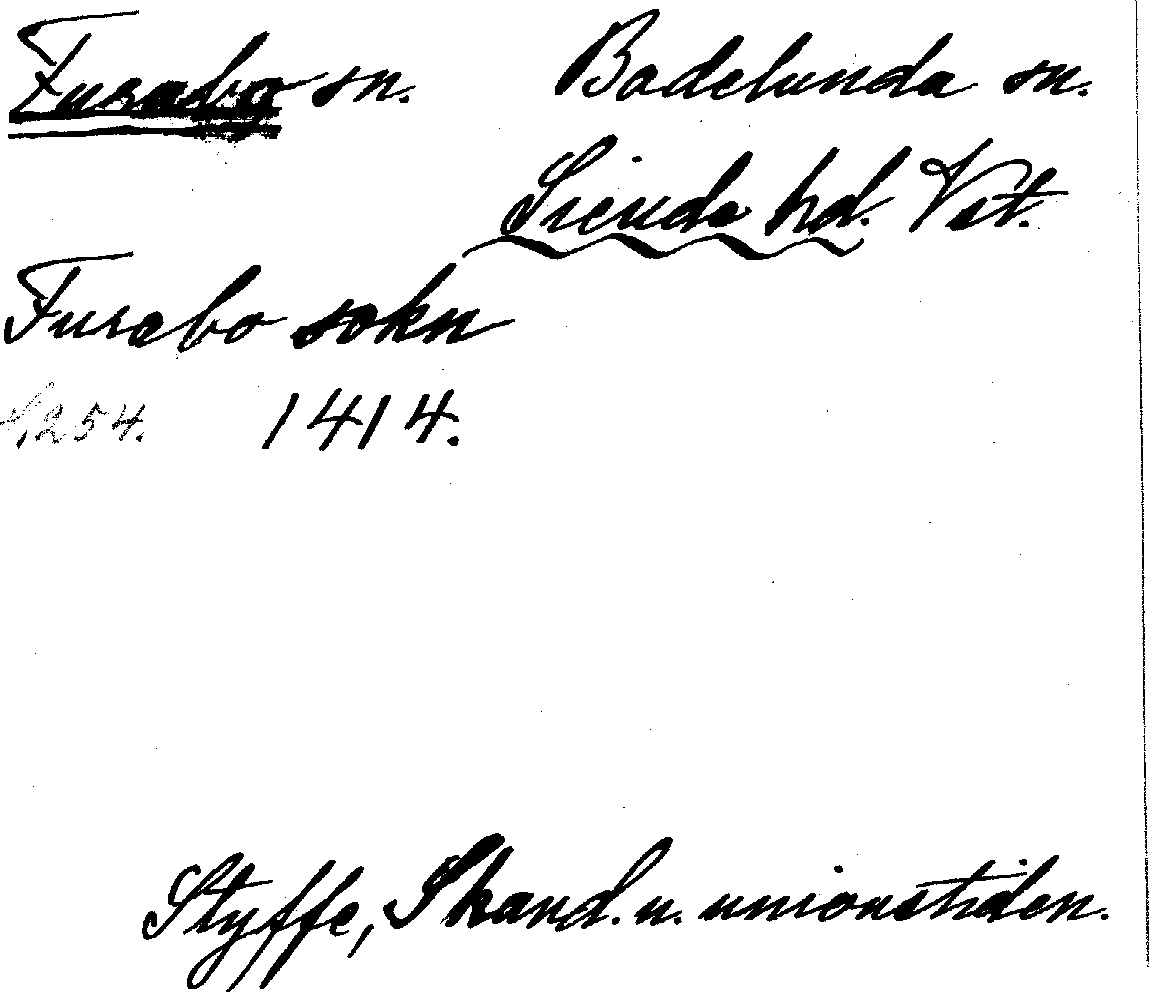 Furabo sn. Badelunda sn.
Siende hd. Vst.
Furabo sokn
S. 254. 1414.
Styffe, Skand. u. unionstiden.